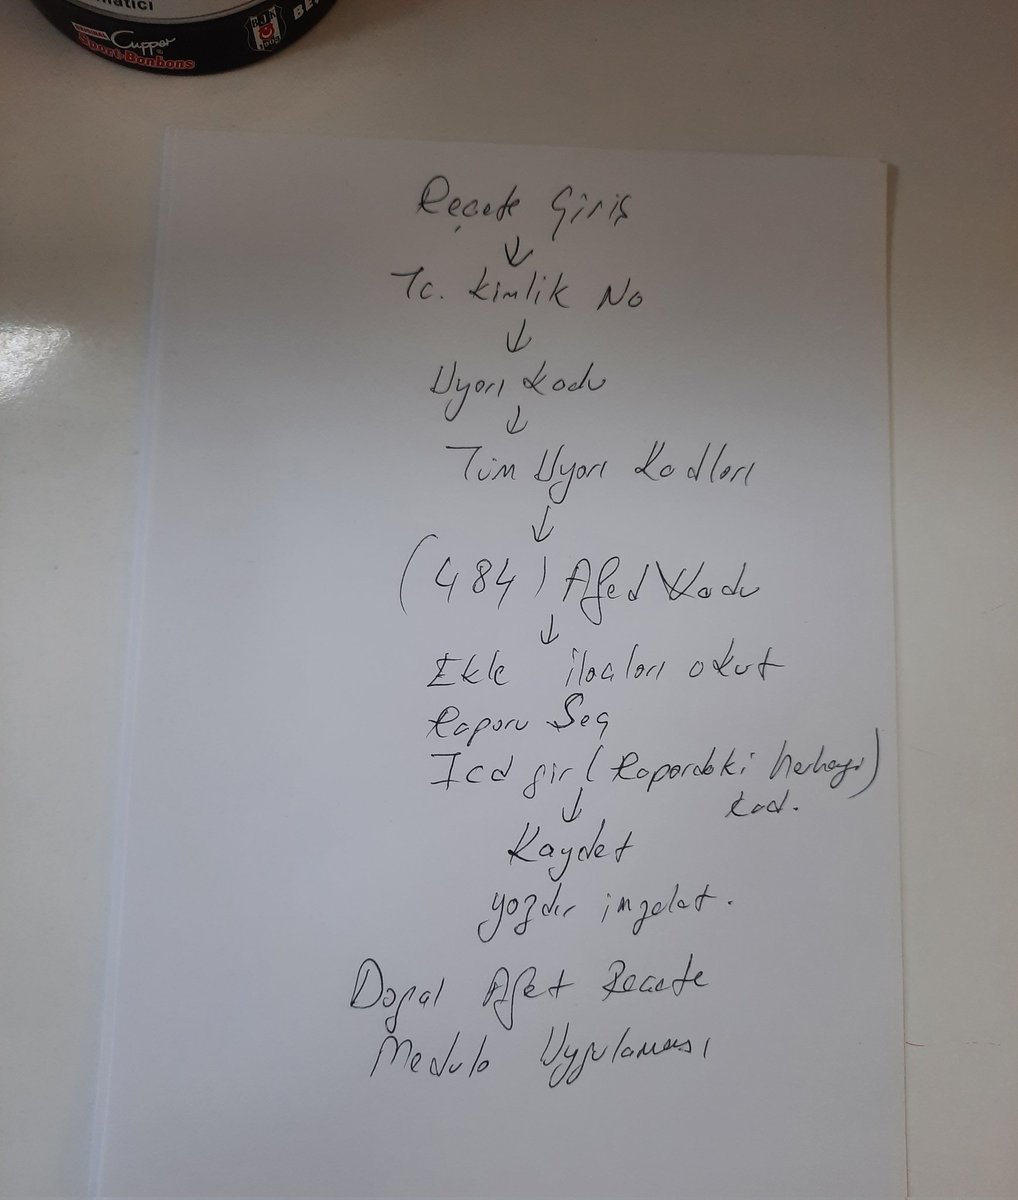 matici
Cupper
Sport-Bonbons
BJK
1903
BE
Reçete Giriş
↓
Tc. Kimlik No
↓
Uyarı Kodu
↓
Tüm Uyarı Kodları
↓
(484) Afed Kodu
↓
Ekle ilaçları okut
Raporu Seç
Icd gir (Rapordaki herhangi)
kod.
↓
Kaydet
yazdır imzalat.
Doğal Afet Reçete
Medula Uygulaması